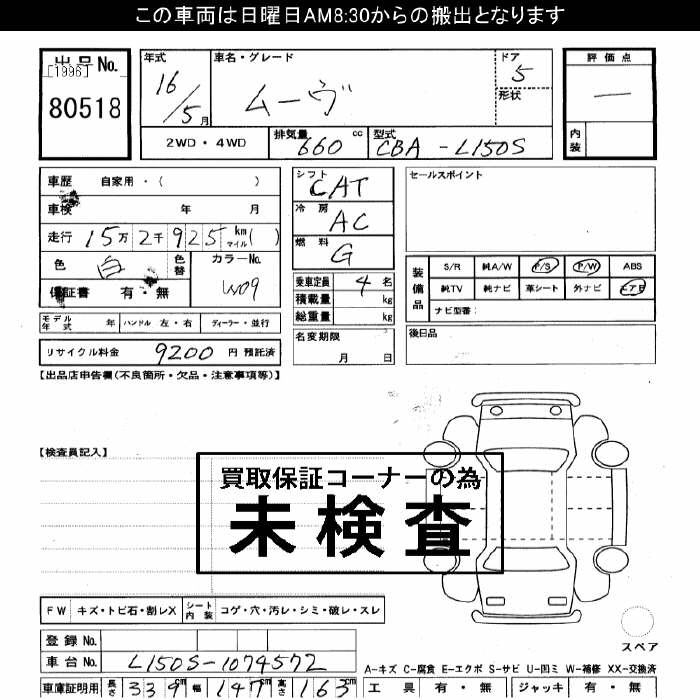 この車両は日曜日AM8:30からの搬出となります
出品No.
[1996]
80518
年式 16/5月
車名・グレード ムーヴ
ドア 5
形状
評価点 ー
内装
2WD・4WD
排気量 660 cc
型式 CBA-L150S
車歴 自家用・( )
車検 年 月
走行 15万2千925km マイル( )
色 白 色替
カラーNo. W09
保証書 有・無
モデル年式 年 ハンドル 左・右 ディーラー・並行
リサイクル料金 9200 円 預託済
シフト CAT
冷房 AC
燃料 G
乗車定員 4 名
積載量 kg
総重量 kg
名変期限 月 日
セールスポイント
装備品
S/R 純A/W P/S P/W ABS
純TV 純ナビ 革シート 外ナビ エアB
ナビ型番:
後日品
【出品店申告欄(不良箇所・欠品・注意事項等)】
【検査員記入】
買取保証コーナーの為
未検査
FW キズ・トビ石・割レX シート内装 コゲ・穴・汚レ・シミ・破レ・スレ
登録No.
車台No. L150S-1074572
車庫証明用 長さ 339cm 幅 147cm 高さ 163cm
スペア
A-キズ C-腐食 E-エクボ S-サビ U-凹ミ W-補修 XX-交換済
工具 有・無 ジャッキ 有・無